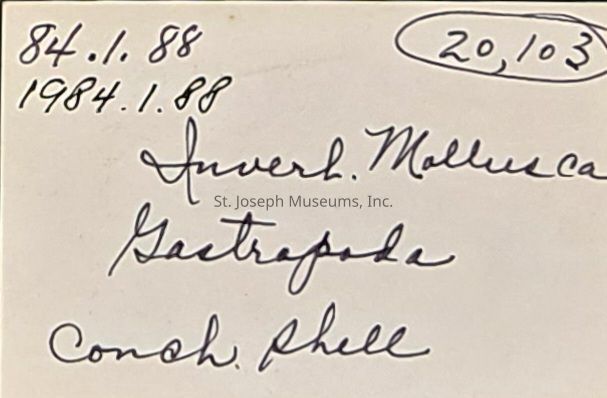 84.1.88
20,103
1984.1.88
Inverb. Mollusca
St. Joseph Museums, Inc.
Gastrapoda
Conch. shell